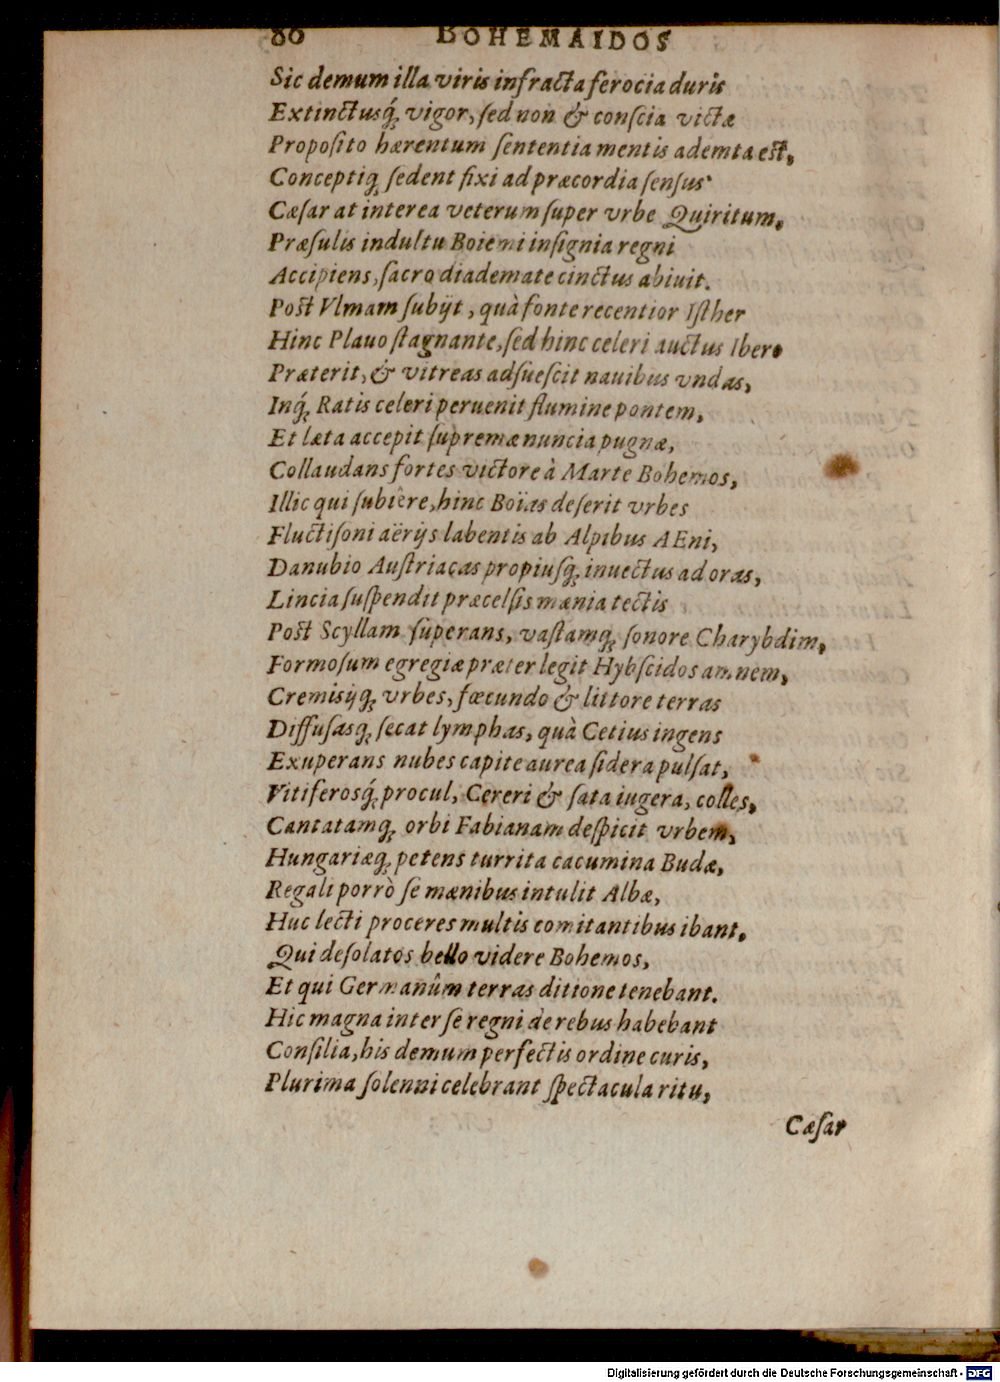 80 BOHEMAIDOS
Sic demum illa viris infracta ferocia duris
Extinctusq́; vigor, ſed non & conſcia victæ
Propoſito hærentum ſententia mentis ademta eſt,
Conceptiq; ſedent fixi ad præcordia ſenſus.
Cæſar at interea veterum ſuper vrbe Quiritum,
Præſulis indultu Boiemi inſignia regni
Accipiens, ſacro diademate cinctus abiuit.
Poſt Vlmam ſubijt, quà fonte recentior Iſther
Hinc Plauo ſtagnante, ſed hinc celeri auctus Ibero
Præterit, & vitreas adſueſcit nauibus vndas,
Inq́; Ratis celeri peruenit flumine pontem,
Et læta accepit ſupremæ nuncia pugnæ,
Collaudans fortes victore à Marte Bohemos,
Illic qui ſubiêre, hinc Boïas deſerit vrbes
Fluctiſoni aërijs labentis ab Alpibus AEni,
Danubio Auſtriacas propiuſq; inuectus ad oras,
Lincia ſuſpendit præcelſis mænia tectis
Poſt Scyllam ſuperans, vaſtamq; ſonore Charybdim,
Formoſum egregiæ præter legit Hybſcidos amnem,
Cremisijq; vrbes, fœcundo & littore terras
Diffuſasq; ſecat lymphas, quà Cetius ingens
Exuperans nubes capite aurea ſidera pulſat,
Vitiferosq́; procul, Cereri & ſata iugera, colles,
Cantatamq; orbi Fabianam deſpicit vrbem,
Hungariæq; petens turrita cacumina Budæ,
Regali porrò ſe mænibus intulit Albæ,
Huc lecti proceres multis comitantibus ibant,
Qui deſolatos bello videre Bohemos,
Et qui Germanûm terras ditione tenebant.
Hic magna inter ſe regni de rebus habebant
Conſilia, his demum perfectis ordine curis,
Plurima ſolenni celebrant ſpectacula ritu,
Cæſar
Digitalisierung gefördert durch die Deutsche Forschungsgemeinschaft - DFG